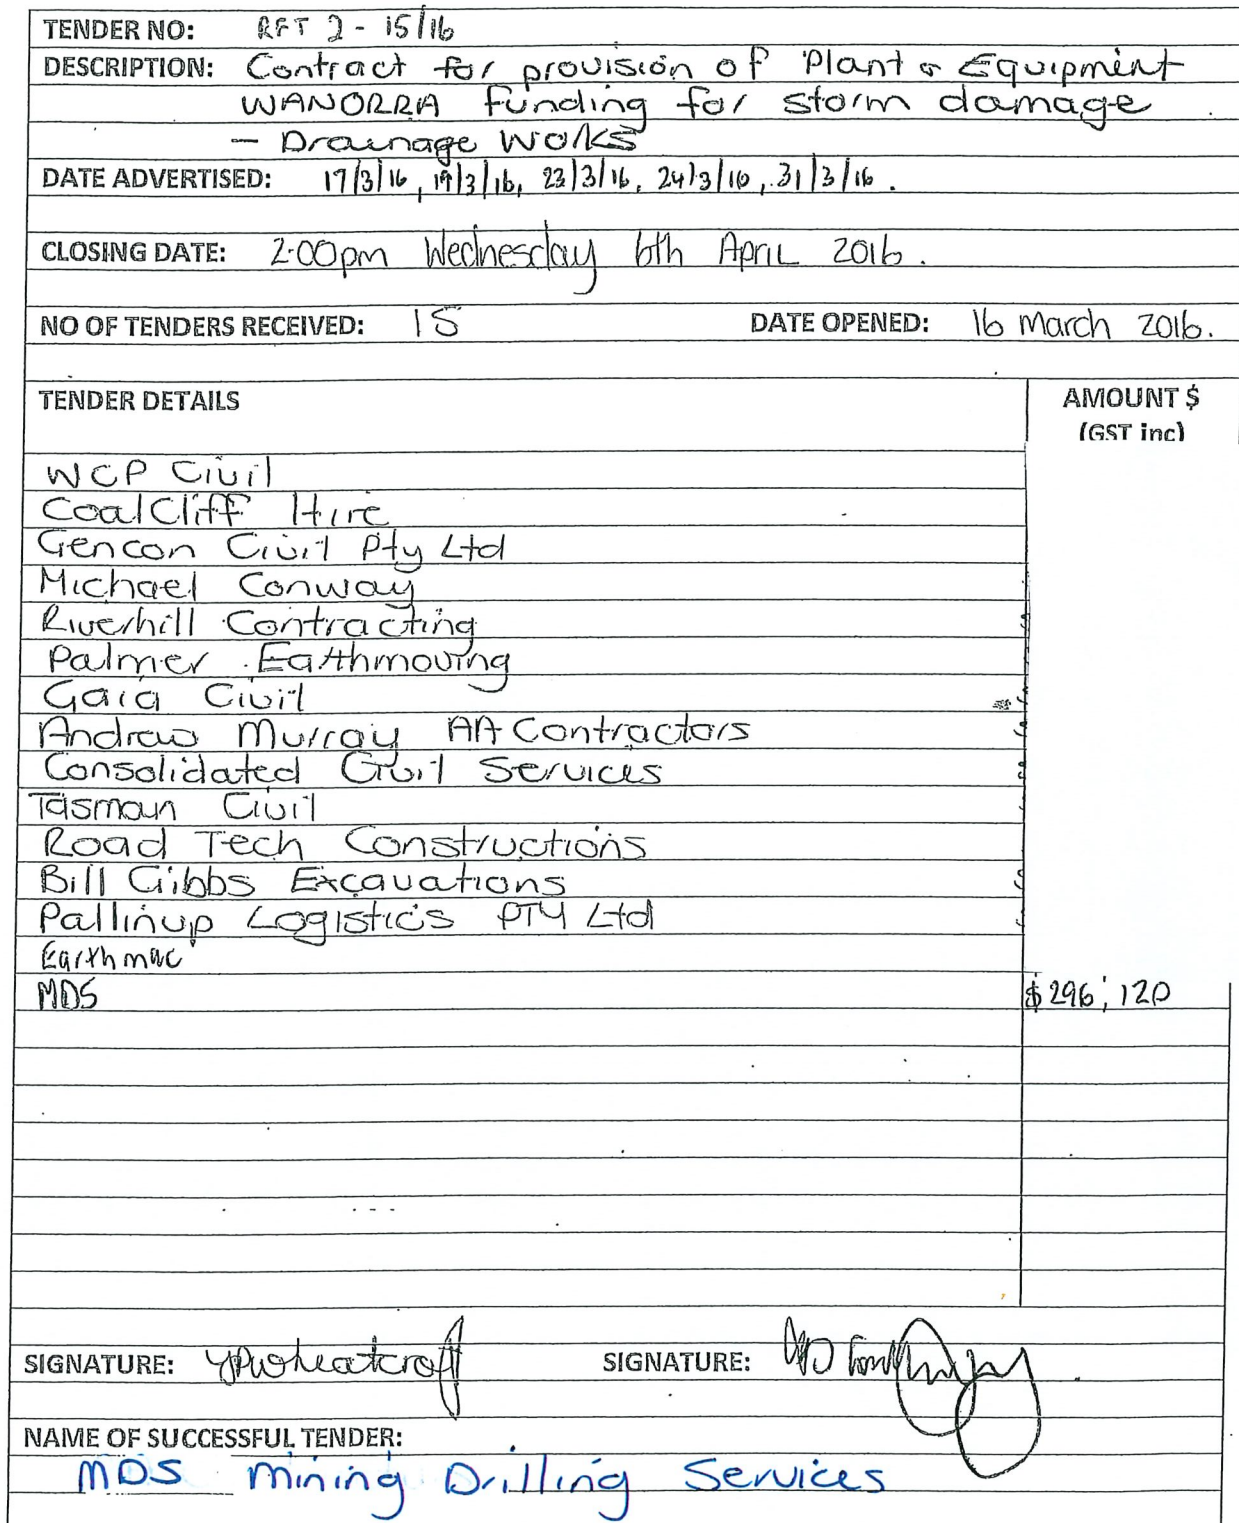 TENDER NO: RFT 2 - 15/16
DESCRIPTION: Contract for provision of Plant & Equipment
WANORRA funding for storm damage
- Drainage Works
DATE ADVERTISED: 17/3/16, 19/3/16, 23/3/16, 24/3/16, 31/3/16.
CLOSING DATE: 2:00pm Wednesday 6th April 2016.
NO OF TENDERS RECEIVED: 15 DATE OPENED: 16 March 2016.
TENDER DETAILS AMOUNT $
(GST inc)
WCP Civil
CoalCliff Hire
Gencon Civil Pty Ltd
Michael Conway
Riverhill Contracting
Palmer Earthmoving
Gaia Civil
Andrew Murray AA Contractors
Consolidated Civil Services
Tasman Civil
Road Tech Constructions
Bill Gibbs Excavations
Pallinup Logistics PTY Ltd
Earthmac
MDS $296,120
SIGNATURE: SIGNATURE:
NAME OF SUCCESSFUL TENDER:
MDS Mining Drilling Services